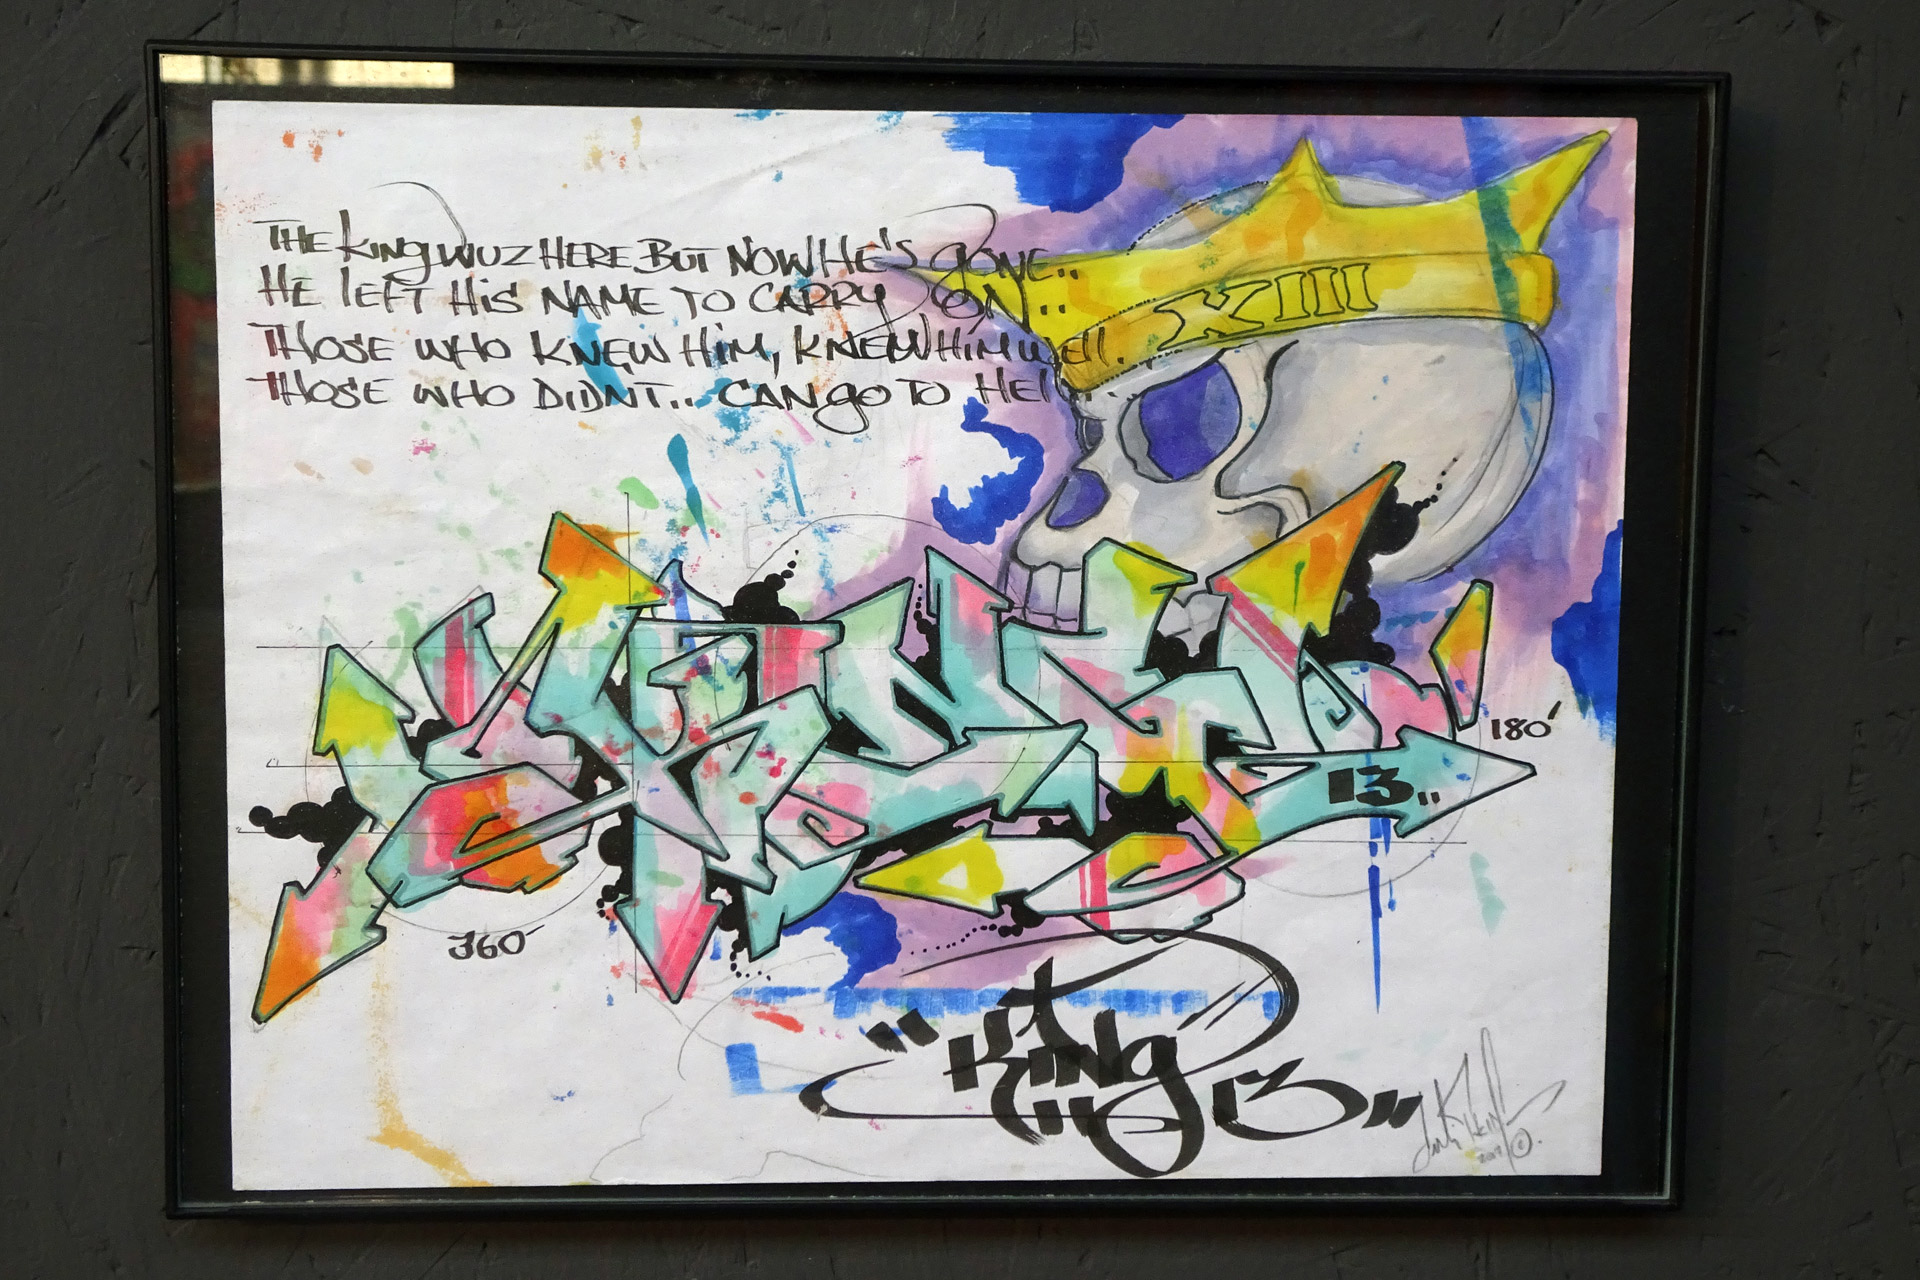 THE KING WUZ HERE BUT NOW HE'S GONE..
HE LEFT HIS NAME TO CARRY ON..
THOSE WHO KNEW HIM, KNEW HIM WELL.
THOSE WHO DIDNT.. CAN GO TO HELL..
XIII
180'
13..
360'
"KING 13"
2017 ©.